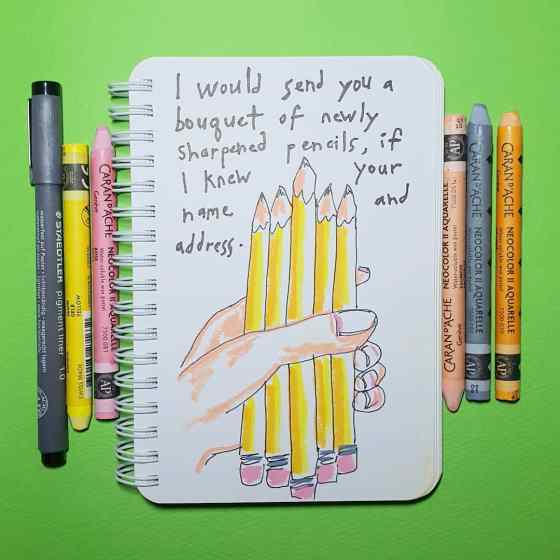 I would send you a
bouquet of newly
sharpened pencils, if
I knew your
name and
address.
STAEDTLER
pigment liner 1.0
CARAN D'ACHE
Genève
NEOCOLOR II AQUARELLE
AP
CARAN D'ACHE
Genève
NEOCOLOR II AQUARELLE
AP
CARAN D'ACHE
NEOCOLOR II AQUARELLE
AP
CARAN D'ACHE
NEOCOLOR II AQUARELLE
AP